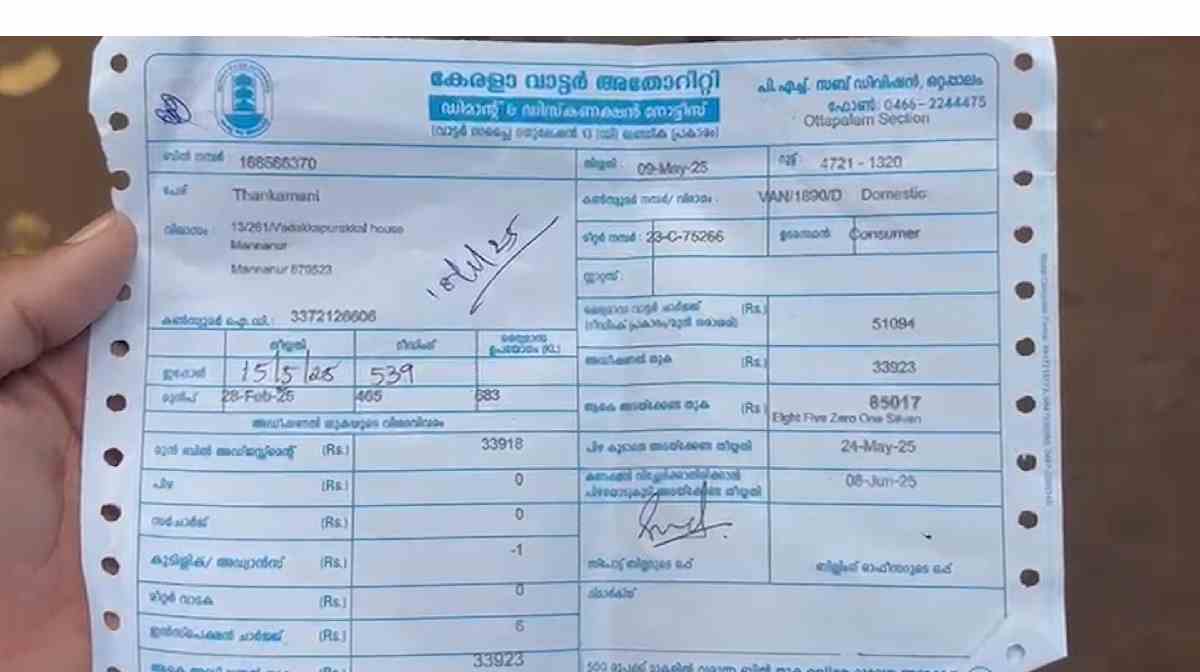 കേരളാ വാട്ടർ അതോറിറ്റി
ഡിമാന്റ് & ഡിസ്കണക്ഷൻ നോട്ടീസ്
(വാട്ടർ സപ്ലൈ റെഗുലേഷൻ 13 (ഡി) പ്രകാരം)
പി.എച്ച്. സബ് ഡിവിഷൻ, ഒറ്റപ്പാലം
ഫോൺ: 0466-2244475
Ottapalam Section
ബിൽ നമ്പർ : 168566370
തിയ്യതി : 09-May-25
റൂട്ട് : 4721 - 1320
പേര് Thankamani
കൺസ്യൂമർ നമ്പർ/ വിഭാഗം : VAN/1890/D Domestic
വിലാസം : 13/261/Vadakkapurakkal house
Mannanur
Mannanur 679523
18/11/25
മീറ്റർ നമ്പർ : 23-C-75266
ഉടമസ്ഥൻ Consumer
സ്റ്റാറ്റസ് :
കൺസ്യൂമർ ഐ.ഡി. : 3372126606
വാട്ടർ ചാർജ്ജ് (Rs.) 51094
തിയ്യതി റീഡിംഗ് ഉപയോഗം (KL)
ഇപ്പോൾ 15/5/25 539
മുൻപ് 28-Feb-25 465 683
അഡീഷണൽ തുക (Rs.) 33923
ആകെ അടയ്ക്കേണ്ട തുക (Rs.) 85017
Eight Five Zero One Seven
അഡീഷണൽ തുകയുടെ വിശദവിവരം
മുൻ ബിൽ അഡ്ജസ്റ്റ്മെന്റ് (Rs.) 33918
പിഴ കൂടാതെ അടയ്ക്കേണ്ട തിയ്യതി 24-May-25
പിഴ (Rs.) 0
കണക്ഷൻ വിച്ഛേദിക്കാതിരിക്കാൻ
പിഴയോടുകൂടി അടയ്ക്കേണ്ട തിയ്യതി 08-Jun-25
സർചാർജ് (Rs.) 0
കുടിശ്ശിക/ അഡ്വാൻസ് (Rs.) -1
സ്പോട്ട് ബില്ലറുടെ ഒപ്പ്
ബില്ലിംഗ് ഓഫീസറുടെ ഒപ്പ്
മീറ്റർ വാടക (Rs.) 0
റിമാർക്സ്
ഇൻസ്പെക്ഷൻ ചാർജ്ജ് (Rs.) 6
33923